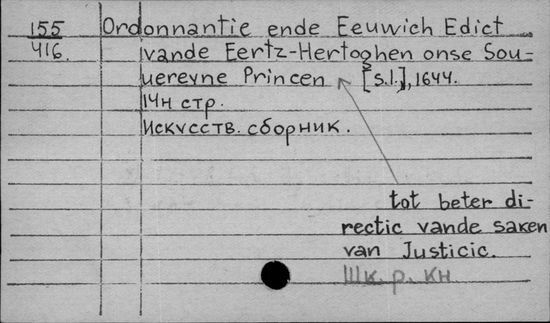 155
416.
Ordonnantie ende Eeuwich Edict
vande Eertz-Hertoghen onse Sou-
uereyne Princen [s.l.], 1644.
14н стр.
Искусств. сборник.
tot beter di-
rectic vande saken
van Justicic.
Шк. р. кн.